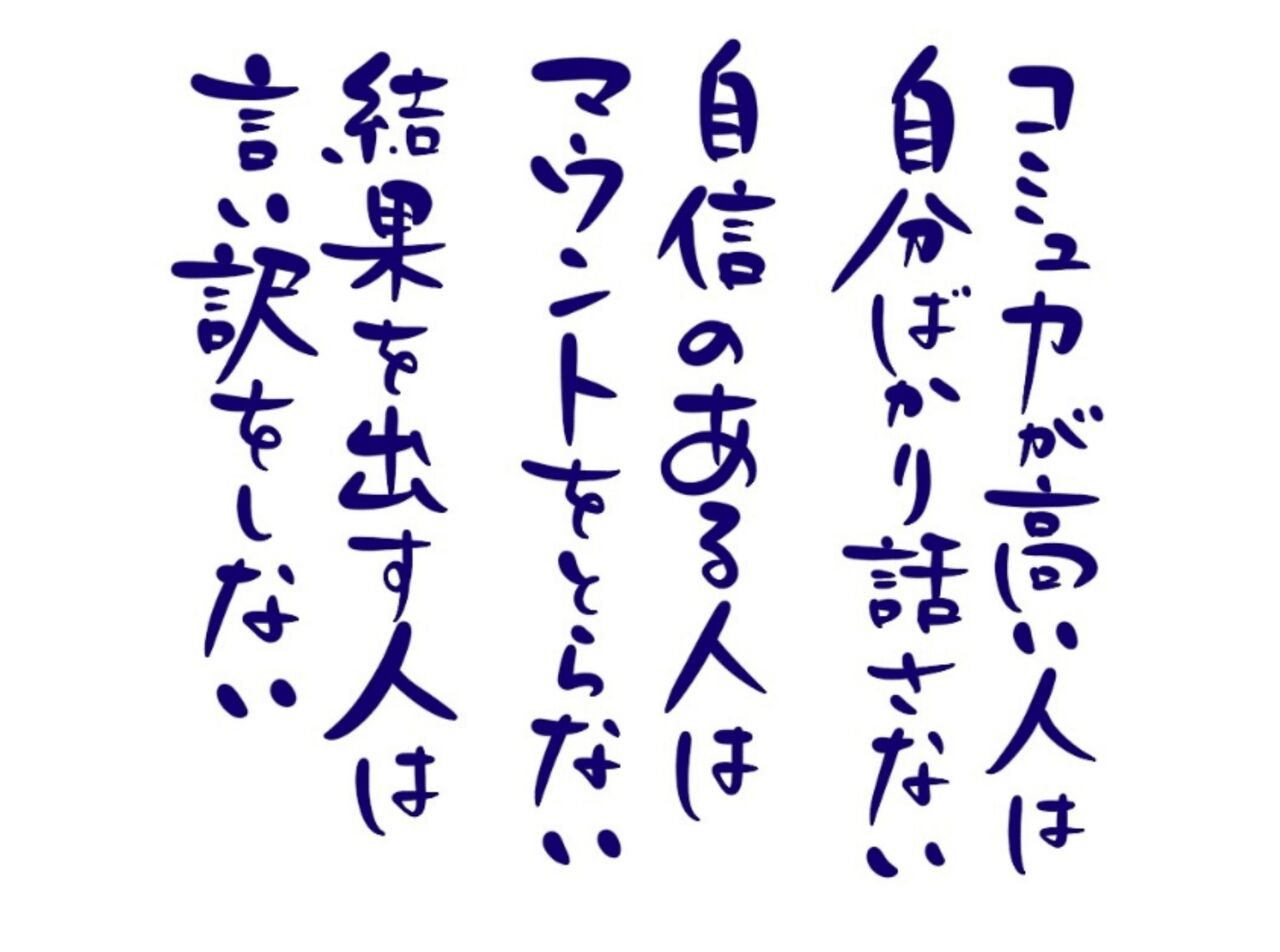 コミュ力が高い人は
自分ばかり話さない
自信のある人は
マウントをとらない
結果を出す人は
言い訳をしない